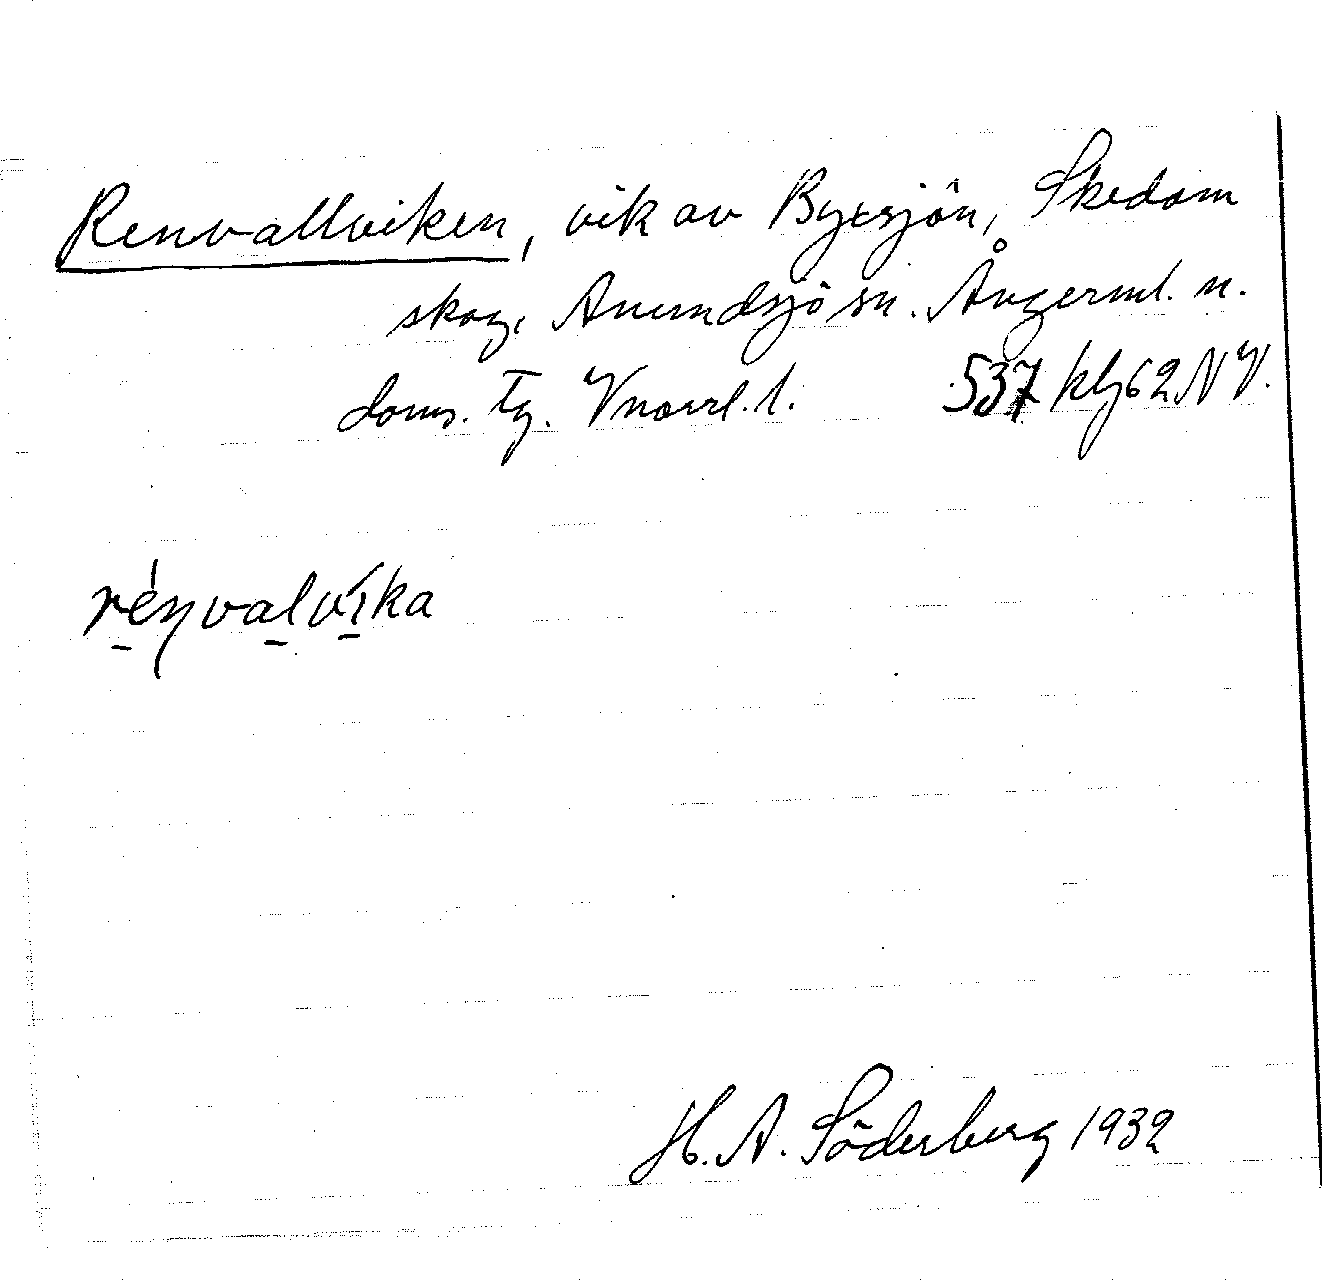 Renvallviken, vik av Byxsjön, Skedom
skog, Anundsjö sn. Ångerml. n.
doms. tg. Vnorrl. l. 537 klg 62 NV.
rénvalvíka
H. A. Söderberg 1932